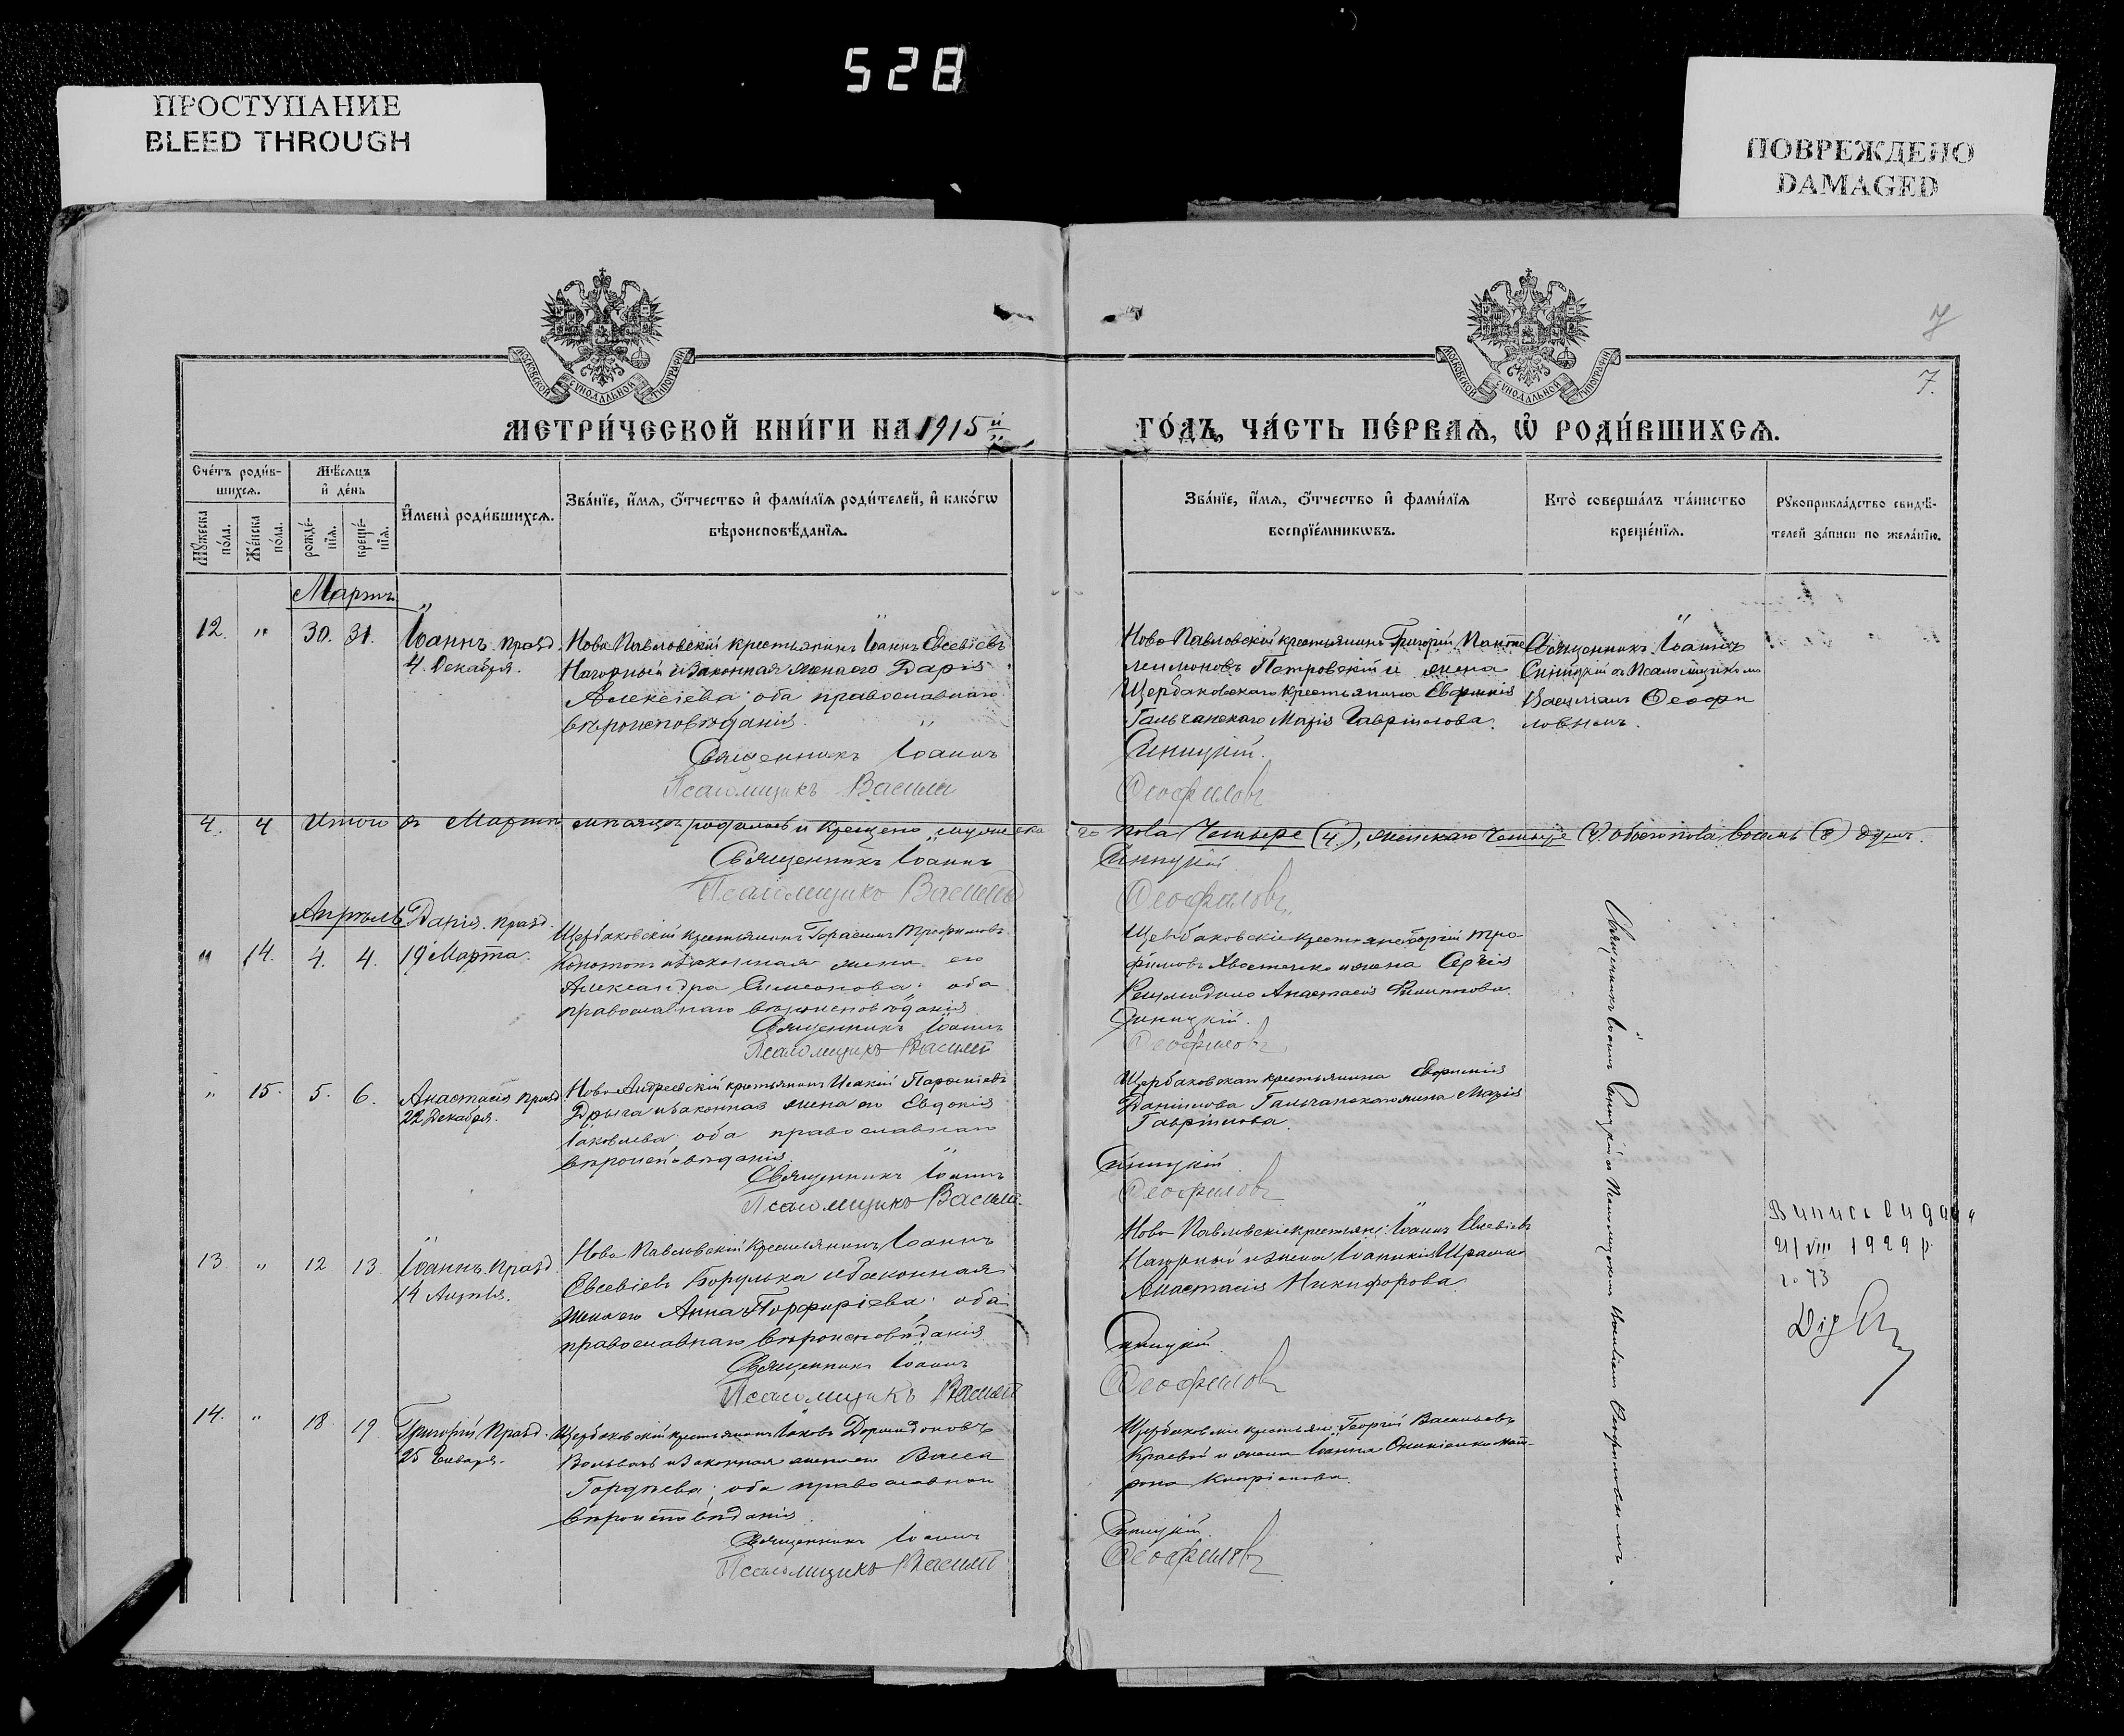 528
ПРОСТУПАНИЕ
BLEED THROUGH
ПОВРЕЖДЕНО
DAMAGED
7
7.
МОСКОВСКОЙ СУНОДАЛЬНОЙ ТИПОГРАФІИ
МОСКОВСКОЙ СУНОДАЛЬНОЙ ТИПОГРАФІИ
МЕТРИ́ЧЕСКОЙ КНИ́ГИ НА 1915 й
ГО́ДЪ, ЧА́СТЬ ПЕ́РВАѦ, Ѡ҆ РОДИ́ВШИХСѦ.
Сче́тъ роди́в-
шихсѧ.
Мꙋжеска по́ла.
Же́нска по́ла.
Мѣ́сѧцъ
и҆ де́нь
рожде́-
нїѧ.
креще́-
нїѧ.
И҆мена̀ роди́вшихсѧ.
Зва́нїе, и҆́мѧ, ѻ҆́тчество и҆ фами́лїѧ роди́телей, и҆ како́гѡ
вѣроисповѣ́данїѧ.
Зва́нїе, и҆́мѧ, ѻ҆́тчество и҆ фами́лїѧ
воспрїе́мникѡвъ.
Кто̀ соверша́лъ та́инство
креще́нїѧ.
Рꙋкоприкла́дство свидѣ́-
телей за́писи по жела́нїю.
Мартъ
12. " 30. 31. Іоаннъ празд.
4. Декабря.
Ново Павловскій крестьянинъ Іоаннъ Евсевіевъ
Нагорный и законная жена его Дарія
Алексіева; оба православнаго
вѣроисповѣданія.
Священникъ Іоаннъ
Псаломщикъ Василій
Ново-Павловской крестьянинъ Григорій Панте
леимоновъ Петровскій и жена
Щербаковскаго крестьянина Евфимія
Гальчанскаго Марія Гавріилова.
Синицкій.
Феофиловъ
Священникъ Іоаннъ
Синицкій съ Псаломщикомъ
Василіемъ Феофи
ловымъ.
4. 4 Итого въ Мартѣ мѣсяцѣ родилось и крещено мужеска
го пола Четыре (4), женскаго Четыре (4). обоего пола восемь (8) душъ.
Священникъ Іоаннъ
Синицкій
Псаломщикъ Василій
Феофиловъ
Апрѣль
" 14. 4. 4. Дарія. празд.
19 Марта.
Щербаковскій крестьянинъ Герасимъ Трофимовъ
Конотопъ и законная жена его
Александра Симеонова; оба
православнаго вѣроисповѣданія
Священникъ Іоаннъ
Псаломщикъ Василій
Щербаковскіе крестьяне: Георгій Тро-
фимовъ Хвостенко и жена Сергія
Анастасія Филиппова.
Синицкій.
Феофиловъ
" 15. 5. 6. Анастасія празд
22 Декабря.
Ново Андреевскій крестьянинъ Исакій
Дрыга и законная жена его Евдокія
Іаковлева; оба православнаго
вѣроисповѣданія.
Священникъ Іоаннъ
Псаломщикъ Василій.
Щербаковская крестьянина Евфимія
Даніилова Гальчанскаго жена Марія
Гавріилова.
Синицкій
Феофиловъ
13. " 12 13. Іоаннъ. празд
14 Апрѣля.
Ново Павловскій крестьянинъ Іоаннъ
Евсевіевъ Борулька и законная
жена его Анна Порфиріева; оба
православнаго вѣроисповѣданія
Священникъ Іоаннъ
Псаломщикъ Василій
Ново Павловскіе крестьяне: Іоаннъ Евсевіевъ
Нагорный и жена Іоанникія
Анастасія Никифорова.
Синицкій.
Феофиловъ
Випись видана
21/VIII 1929 р.
№ 73
14. " 18 19 Григорій празд.
25 Января.
Щербаковскій крестьянинъ Іаковъ
и законная жена его Васса
Гордѣева; оба православнаго
вѣроисповѣданія.
Священникъ Іоаннъ
Псаломщикъ Василій
Щербаковскіе крестьяне: Георгій Васильевъ
Краевой и жена Іоанна Онипіенко Мат-
рона Кипріанова.
Синицкій.
Феофиловъ
Священникъ Іоаннъ Синицкій съ Псаломщикомъ Василіемъ Феофиловымъ.